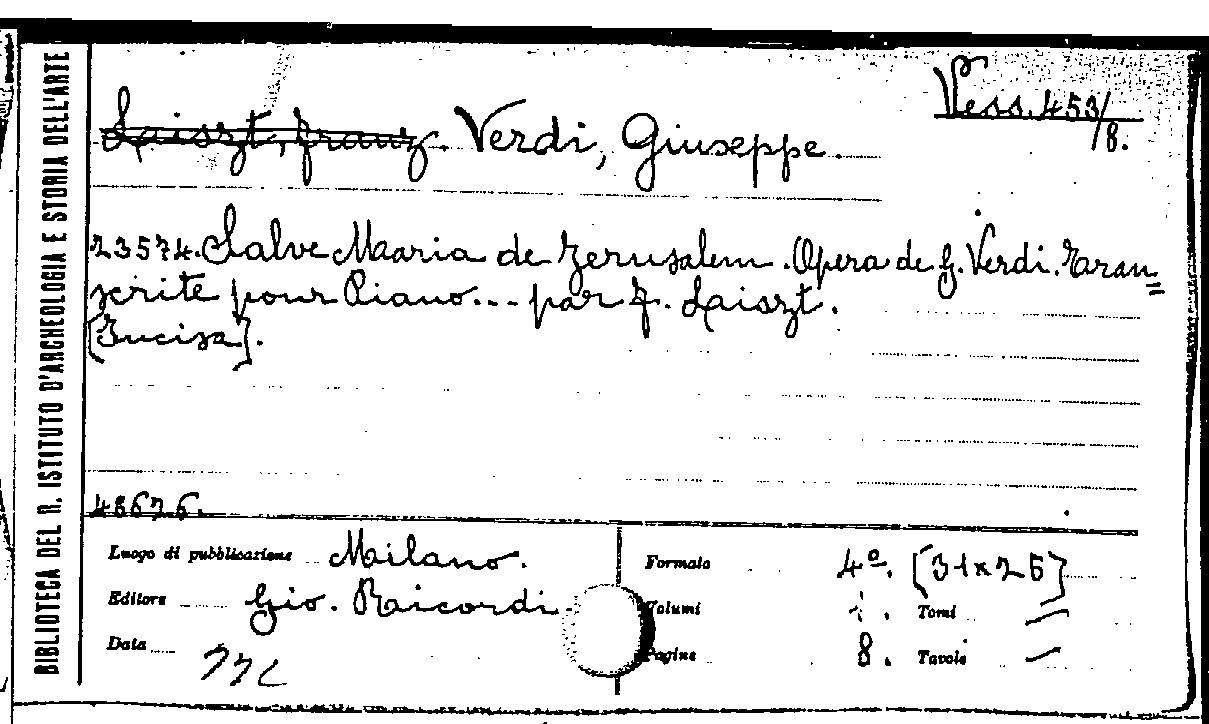 BIBLIOTECA DEL R. ISTITUTO D'ARCHEOLOGIA E STORIA DELL'ARTE
Vess. 453/8.
Liszt, Franz. Verdi, Giuseppe.
23574. Salve Maria de Jerusalem. Opera de G. Verdi. Tran=
scrite pour Piano... par F. Liszt.
[Incisa].
48676.
Luogo di pubblicazione Milano.
Formato 4º. [31x26]
Editore Gio. Ricordi.
Volumi 1. Tomi —
Data
Pagine 8. Tavole —